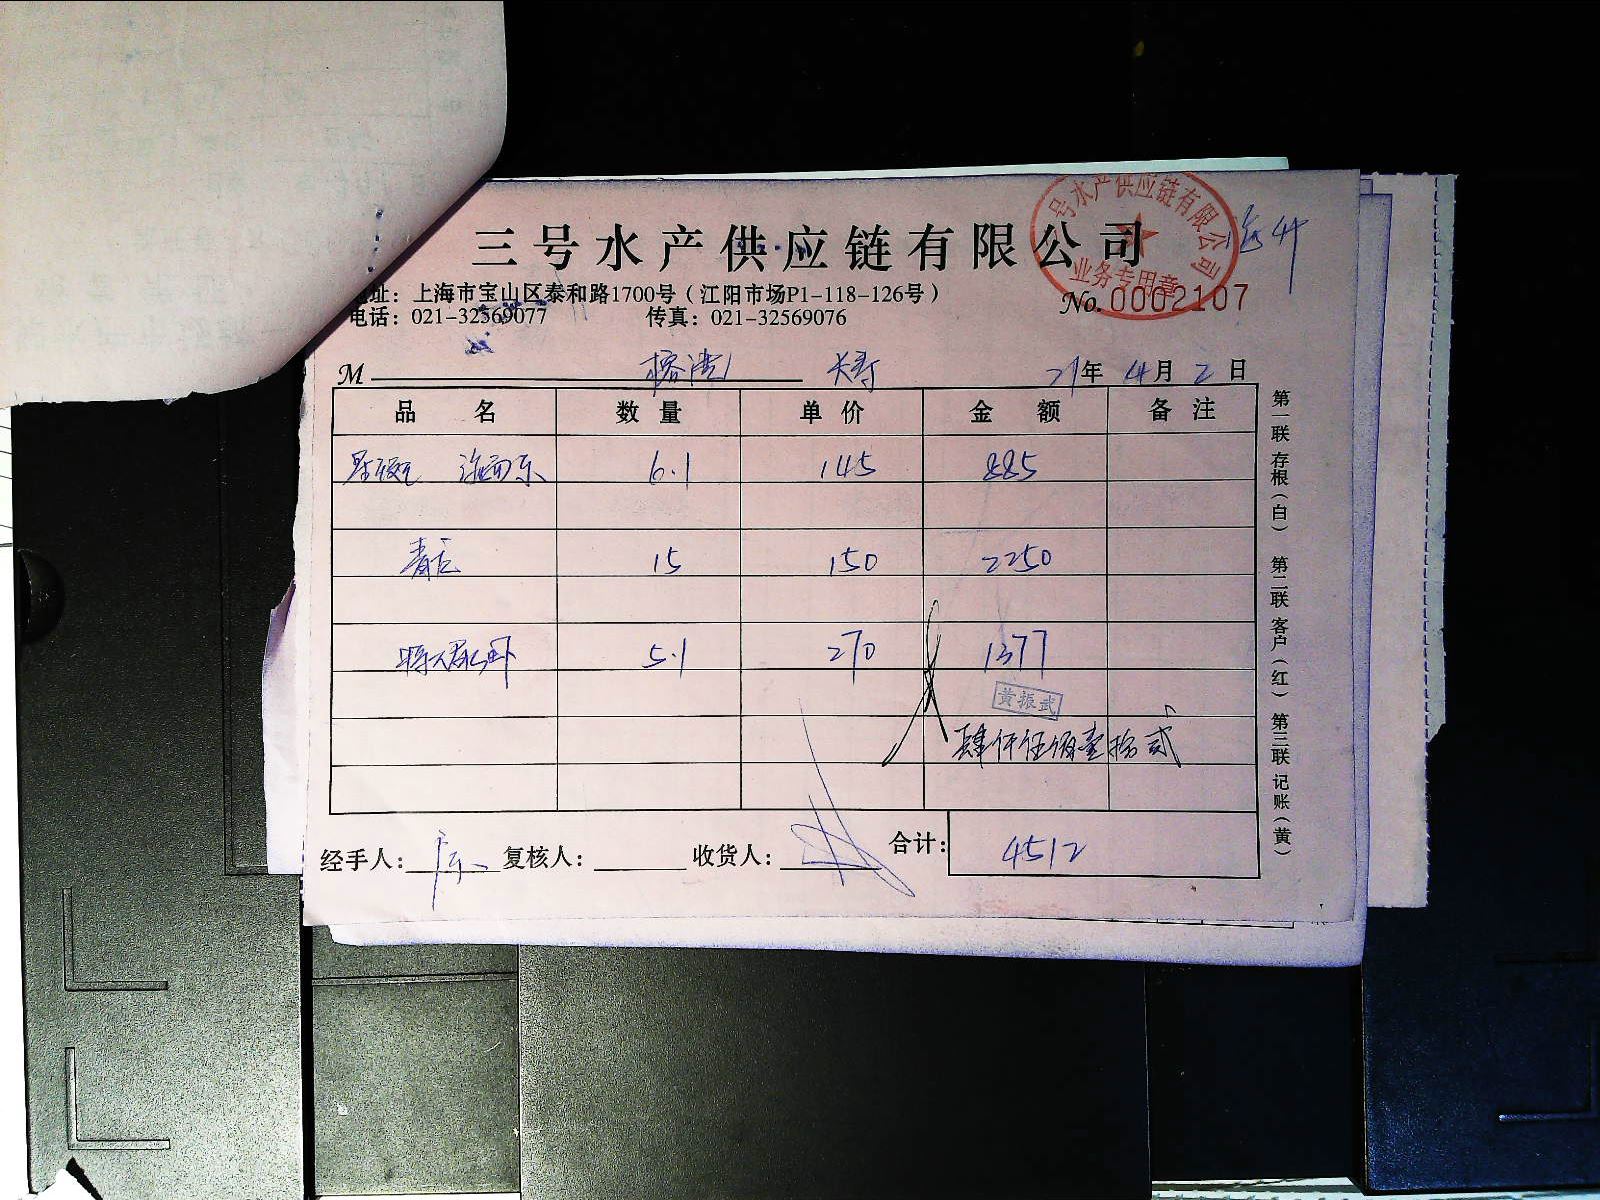 三号水产供应链有限公司
号水产供应链有限公司
业务专用章
地址：上海市宝山区泰和路1700号（江阳市场P1-118-126号）
No. 0002107
电话：021-32569077 传真：021-32569076
M 21年 4月 2日
品名 数量 单价 金额 备注
6.1 145 885
青龙 15 150 2250
5.1 270 1377
黄振武
肆仟伍佰壹拾贰
经手人： 复核人： 收货人： 合计：4512
第一联 存根（白） 第二联 客户（红） 第三联 记账（黄）